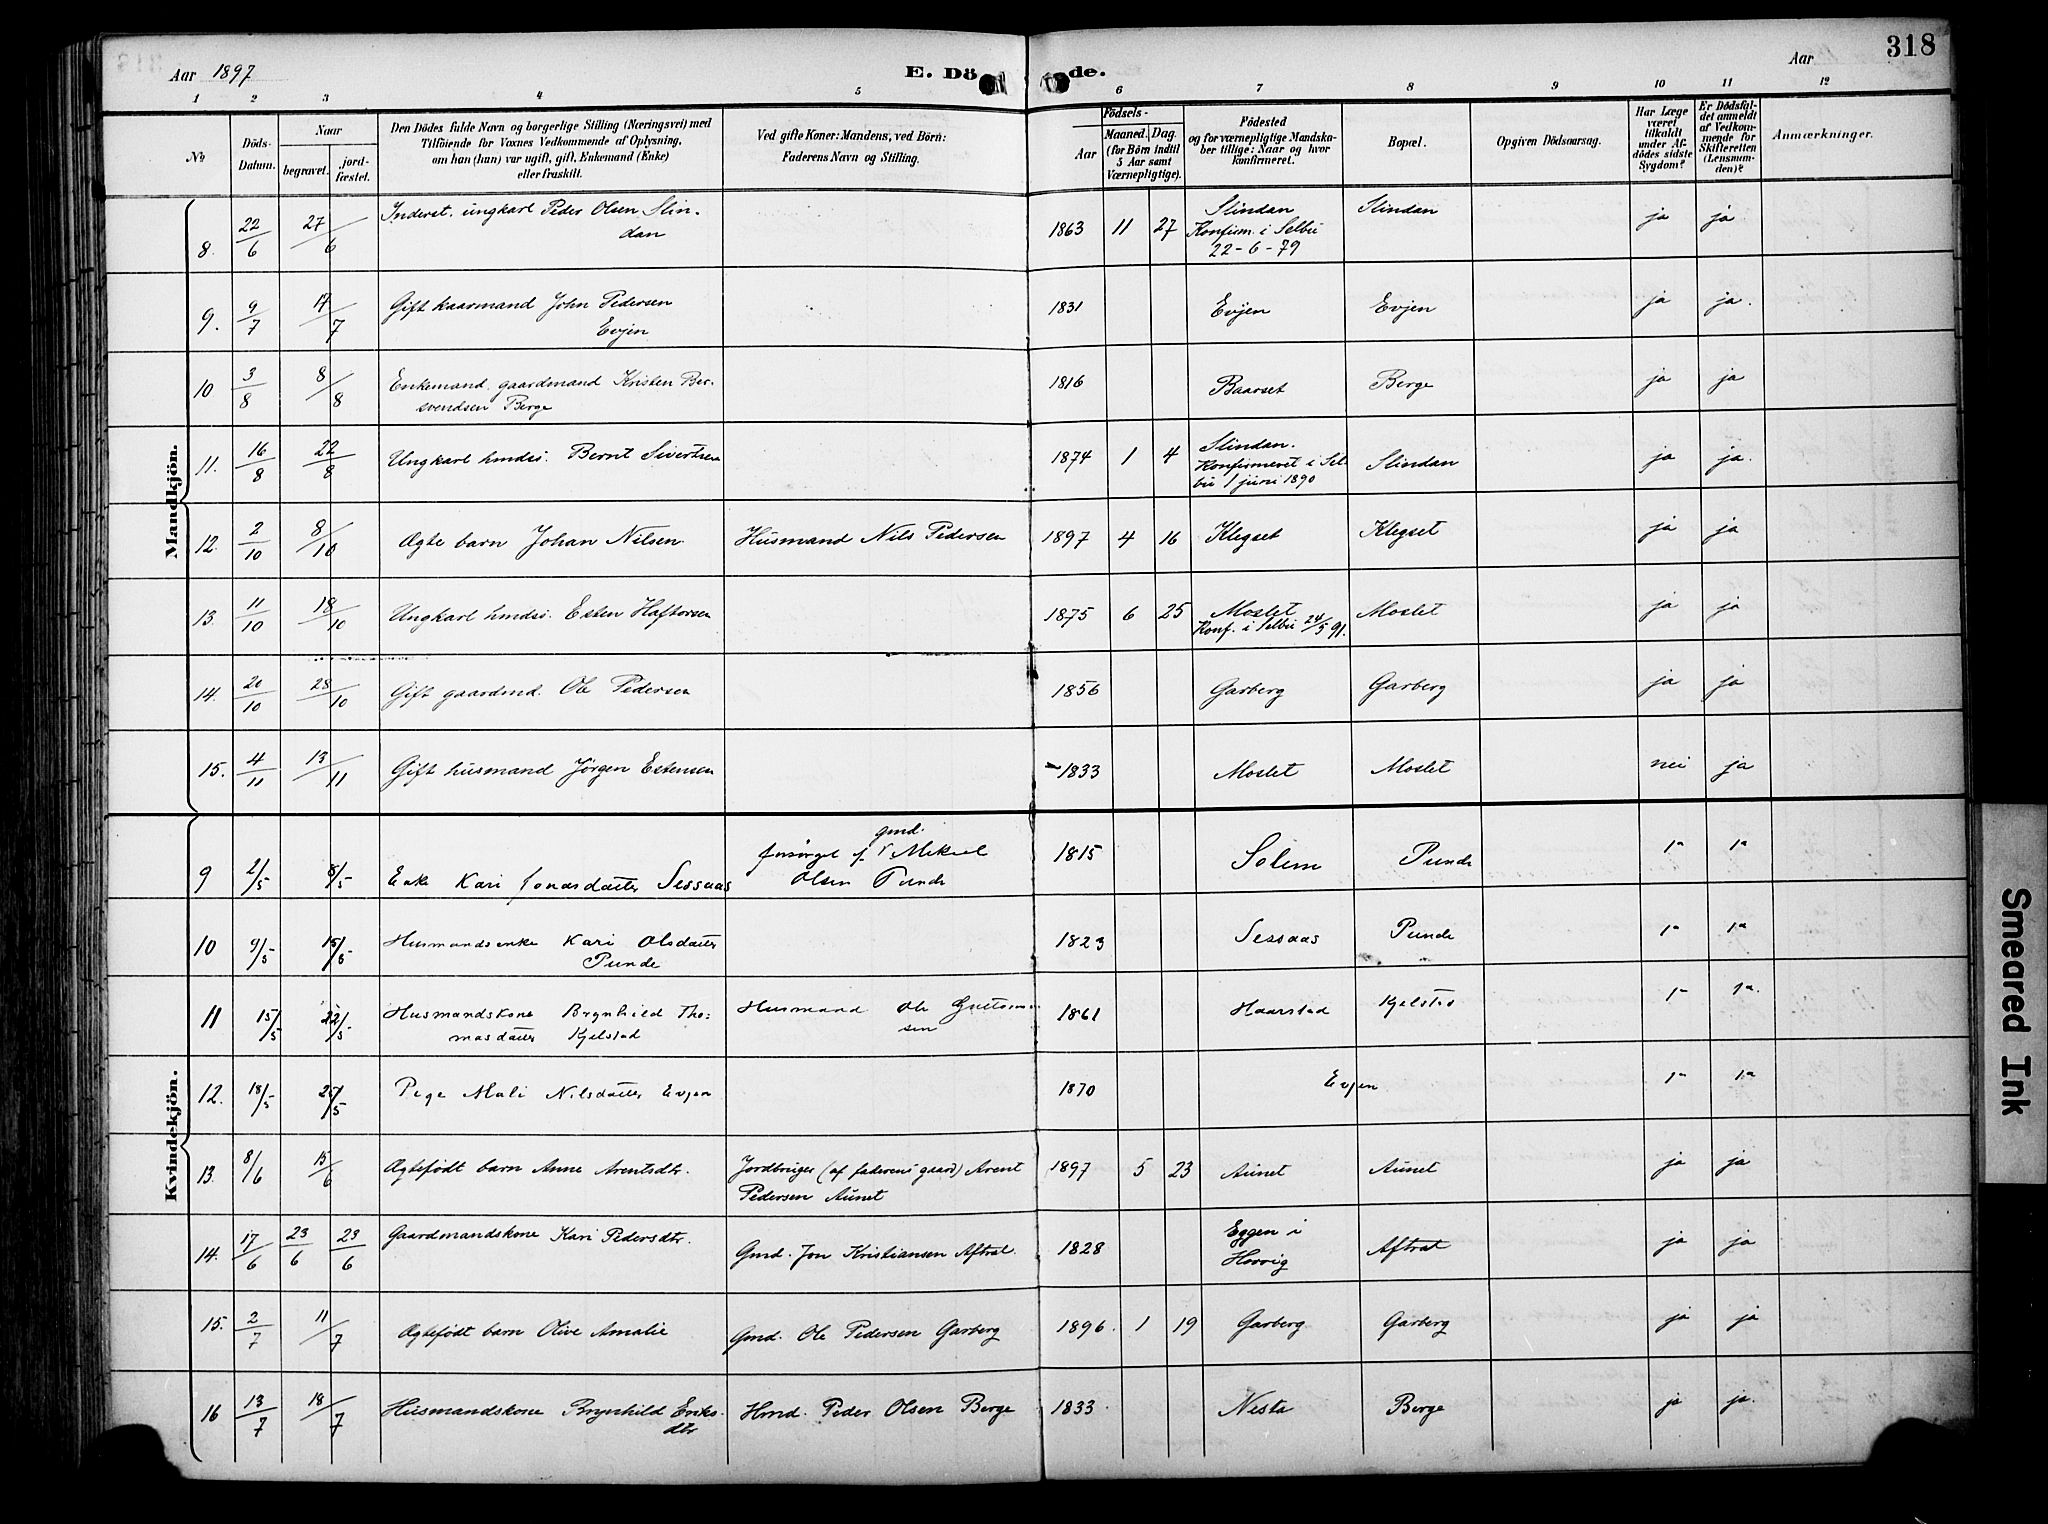 318
Aar 1897
E. Dö de.
Aar
1 2 3 4 5 6 7 8 9 10 11 12
No
Döds-Datum.
Naar
begravet.
jord-fæstet.
Den Dödes fulde Navn og borgerlige Stilling (Næringsvei) med
Tilföiende for Voxnes Vedkommende af Oplysning,
om han (hun) var ugift, gift, Enkemand (Enke)
eller fraskilt.
Ved gifte Koner: Mandens, ved Börn:
Faderens Navn og Stilling.
Födsels-
Aar
Maaned. Dag.
(for Börn indtil
5 Aar samt
Værnepligtige).
Födested
og for værnepligtige Mandska-
ber tillige: Naar og hvor
konfirmeret.
Bopæl.
Opgiven Dödsaarsag.
Har Læge
været
tilkaldt
under Af-
dödes sidste
Sygdom?
Er Dödsfal-
det anmeldt
af Vedkom-
mende for
Skifteretten
(Lensman-
den)?
Anmærkninger.
Mandkjön.
8. 22/6 27/6 Inderst. ungkarl Peder Olsen Slin-
dan 1863 11 27 Slindan Slindan ja ja
Konfirm. i Selbu
22-6-79
9. 9/7 17/7 Gift kaarmand John Pedersen
Evjen 1831 Evjen Evjen ja ja.
10 3/8 8/8 Enkemand. gaardmand Kristen Ber-
svendsen Berge 1816 Baarset Berge ja ja
11. 16/8 22/8 Ungkarl hmdss. Bernt Sivertsen 1874 1 4 Slindan. Slindan ja ja.
Konfirmeret i Sel-
bu 1 juni 1890
12. 2/10 8/10 Ægte barn Johan Nilsen Husmand Nils Pedersen 1897 4 16 Klegset Klegset ja ja
13. 11/10 18/10 Ungkarl hmdss. Esten Haftorsen 1875 6 25 Moslet Moslet ja ja
Konf. i Selbu 24/5 91.
14. 20/10 28/10 Gift gaardmd. Ole Pedersen 1856 Garberg Garberg ja ja
15. 4/11 13/11 Gift husmand Jørgen Estensen 1833 Moslet Moslet nei ja
Kvindekjön.
9 2/5 8/5 Enke Kari Jonasdatter Sessaas forsørget f. gmd. Mikael
Olsen Punde 1815 Solem Punde ja ja
10 9/5 15/5 Husmandsenke Kari Olsdatter
Punde 1823 Sessaas Punde ja ja
11 15/5 22/5 Husmandskone Brynhild Tho=
masdatter Kjelstad Husmand Ole
sen 1861 Haarstad Kjelstad ja ja.
12. 18/5 /5 Pige Mali Nilsdatter Evjen 1870 Evjen ja ja
13. 8/6 15/6 Ægtefødt barn Anne Arentsdtr. Jordbruger (af faderens gaard) Arent
Pedersen Aunet 1897 5 23 Aunet Aunet ja ja
14. 17/6 23/6 23/6 Gaardmandskone Kari Pedersdtr. Gmd. Jon Kristiansen Aftret. 1828 Eggen i
Hovvig Aftret ja ja
15. 2/7 11/7 Ægtefødt barn Olive Amalie Gmd. Ole Pedersen Garberg 1896. 1 19 Garberg Garberg ja ja
16 13/7 18/7 Husmandskone Brynhild Eriks-
dtr Hmd. Peder Olsen Berge 1833 Nesta Berge ja ja.
Smeared Ink